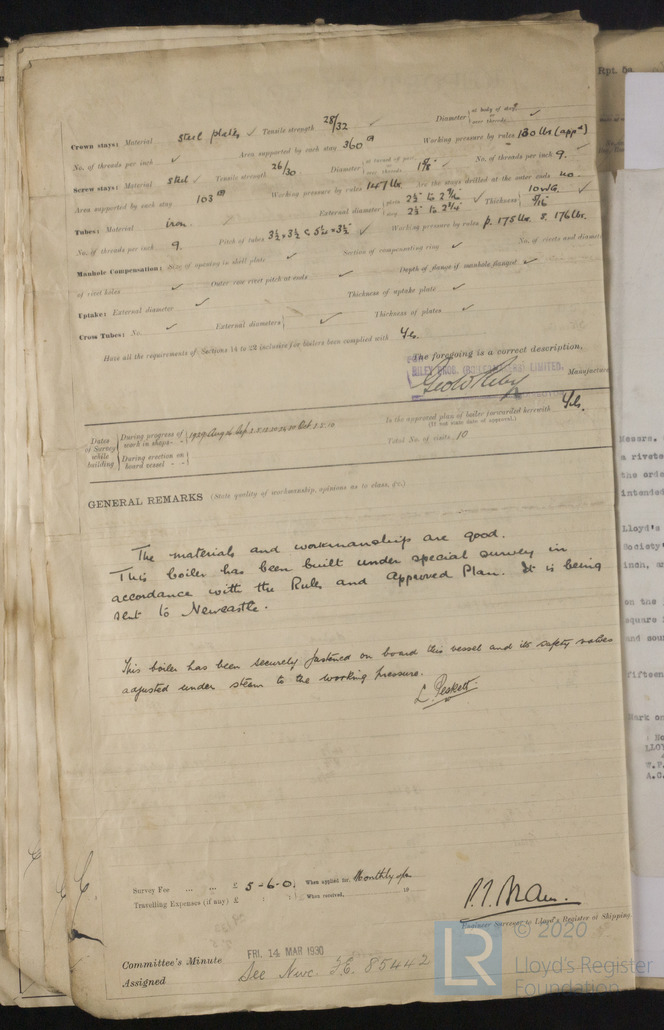 Crown stays: Material steel plates ✓ Tensile strength 28/32 ✓ Diameter { at body of stay, over threads ✓
No. of threads per inch ✓ Area supported by each stay 360 □" Working pressure by rules 180 lbs (appd)
Screw stays: Material steel ✓ Tensile strength 26/30 Diameter { at turned off part, over threads 1 5/8" ✓ No. of threads per inch 9. ✓
Area supported by each stay 103 □" Working pressure by rules 187 lbs Are the stays drilled at the outer ends no.
Tubes: Material iron. ✓ External diameter { plain 2½" to 2 9/16" stay 2½" to 2¾" ✓ Thickness { 10 WG. 5/16" ✓
No. of threads per inch 9. Pitch of tubes 3½" x 3½" & 5¼" x 3½" Working pressure by rules p. 175 lbs s. 176 lbs.
Manhole Compensation: Size of opening in shell plate ✓ Section of compensating ring ✓ No. of rivets and diamet
of rivet holes ✓ Outer row rivet pitch at ends ✓ Depth of flange if manhole flanged ✓
Uptake: External diameter ✓ Thickness of uptake plate ✓
Cross Tubes: No. ✓ External diameters { ✓ Thickness of plates ✓
Have all the requirements of Sections 14 to 22 inclusive for boilers been complied with Yes.
The foregoing is a correct description,
RILEY BROS. (BOILERMAKERS) LIMITED,
Geo W Riley Manufacture
Dates of Survey while building { During progress of work in shops - - } 1929 Aug
During erection on board vessel - - -
Is the approved plan of boiler forwarded herewith Yes.
(If not state date of approval.)
Total No. of visits 10
GENERAL REMARKS (State quality of workmanship, opinions as to class, &c.)
The materials and workmanship are good.
This boiler has been built under special survey in
accordance with the Rules and Approved Plan. It is being
sent to Newcastle.
This boiler has been securely fastened on board this vessel and its safety valves
adjusted under steam to the working pressure.
L. Peskett
Survey Fee ... ... £ 5-6-0. When applied for, Monthly
Travelling Expenses (if any) £ : : When received, 19
Engineer Surveyor to Lloyd's Register of Shipping.
Committee's Minute FRI. 14 MAR 1930
Assigned See Nwc. F.E. 85442
LR © 2020
Lloyd's Register
Foundation
Rpt. 5a.
Messrs.
a rivete
the orde
intended
Lloyd's
Society'
inch, an
on the
square i
and soun
fifteen
Mark on
LLOY
W.P.
A.C.